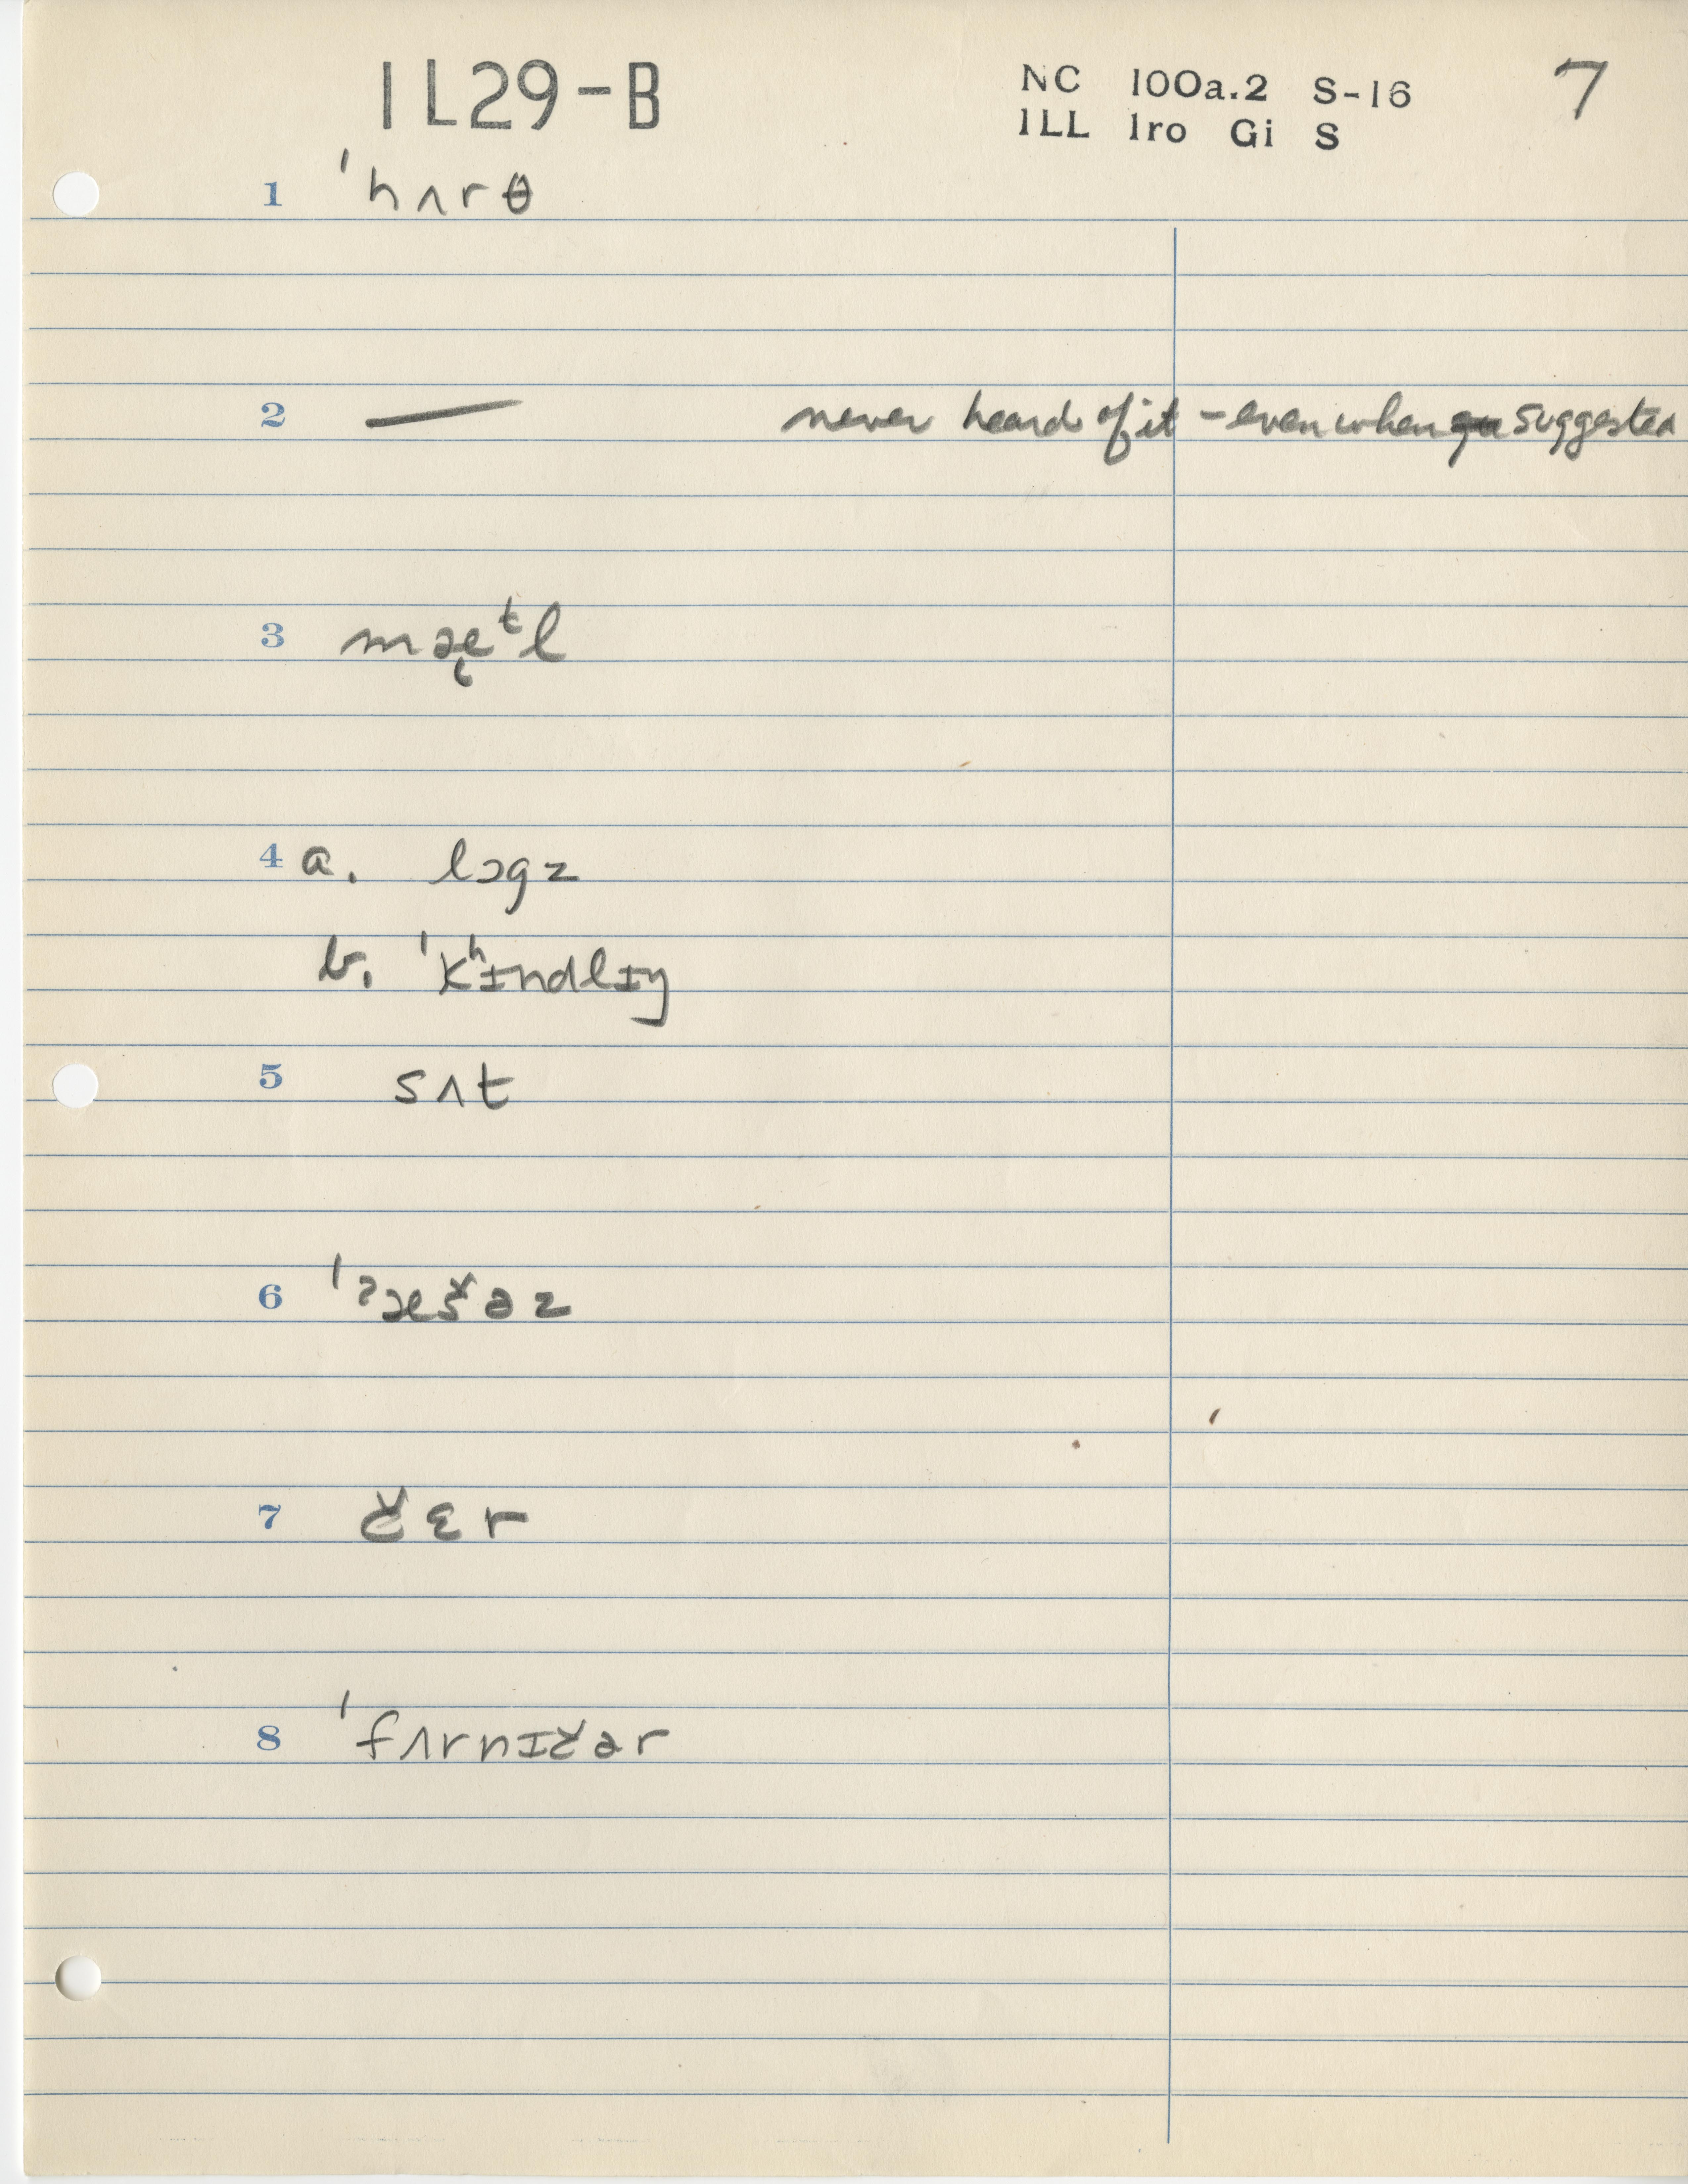 IL29-B
NC 100a.2 S-16 7
ILL Iro Gi S
1 ˈhʌrθ
2 — never heard of it - even when suggested
3 mæ̨ᵗl
4 a. lɔgz
b. ˈkʰɪndlɪŋ
5 sʌt
6 ˈˀæšəz
7 čɛr
8 ˈfʌrnɪčər